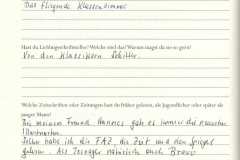 Das fliegende Klassenzimmer
Hast du Lieblingsschriftsteller? Welche sind das? Warum magst du sie so gern?
Von den Klassikern Schiller.
Welche Zeitschriften oder Zeitungen hast du früher gelesen, als Jugendlicher oder später als
junger Mann?
Bei meinem Freund Hannes gab es immer die neuesten
Illustrierten.
Selber habe ich die FAZ, die Zeit und den Spiegel
gelesen. Als Teenager natürlich auch Bravo